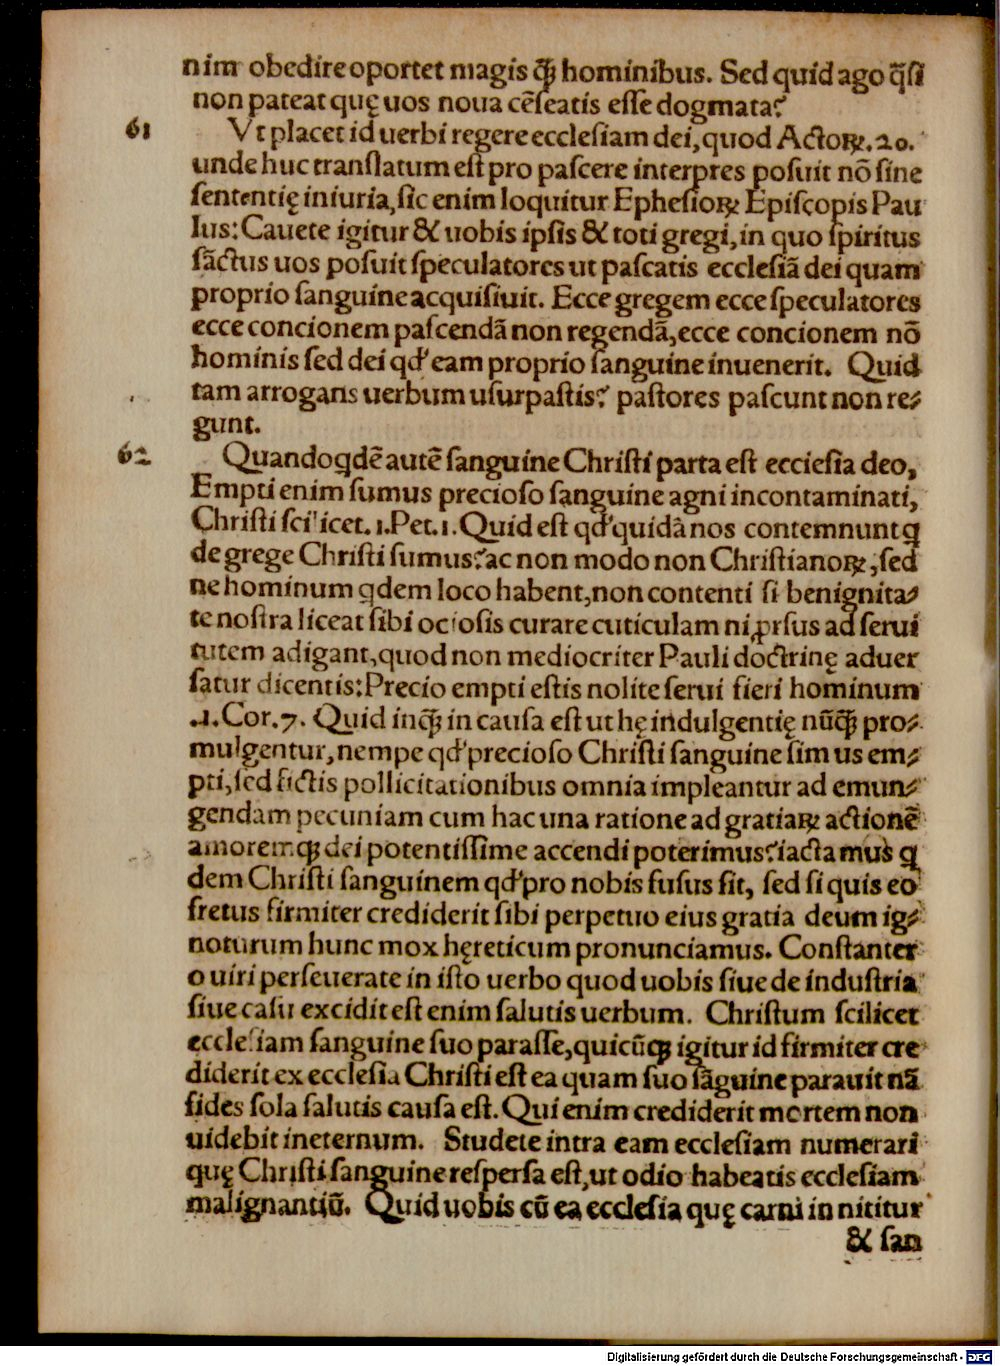 nim obedire oportet magis ꝙ̃ hominibus. Sed quid ago q̃ſi
non pateat quę uos noua cẽſeatis eſſe dogmata?
61 Vt placet id uerbi regere eccleſiam dei, quod Actoꝝ. 20.
unde huc tranſlatum eſt pro paſcere interpres poſuit nõ ſine
ſententię iniuria, ſic enim loquitur Epheſioꝝ Epiſcopis Pau
lus: Cauete igitur & uobis ipſis & toti gregi, in quo ſpiritus
ſãctus uos poſuit ſpeculatores ut paſcatis eccleſiã dei quam
proprio ſanguine acquiſiuit. Ecce gregem ecce ſpeculatores
ecce concionem paſcendã non regendã, ecce concionem nõ
hominis ſed dei qd' eam proprio ſanguine inuenerit. Quid
tam arrogans uerbum uſurpaſtis? paſtores paſcunt non re⸗
gunt.
62 Quandoꝗdẽ autẽ ſanguine Chriſti parta eſt eccieſia deo,
Empti enim ſumus precioſo ſanguine agni incontaminati,
Chriſti ſcilicet. 1. Pet. 1. Quid eſt qd' quidã nos contemnunt ꝗ
de grege Chriſti ſumus? ac non modo non Chriſtianoꝝ, ſed
ne hominum ꝗdem loco habent, non contenti ſi benignita⸗
te noſtra liceat ſibi ocioſis curare cuticulam ni ꝓrſus ad ſerui
tutem adigant, quod non mediocriter Pauli doctrinę aduer
ſatur dicentis: Precio empti eſtis nolite ſerui fieri hominum
.1. Cor. 7. Quid inꝙ̃ in cauſa eſt ut hę indulgentię nũꝙ̃ pro⸗
mulgentur, nempe qd' precioſo Chriſti ſanguine ſimus em⸗
pti, ſed fictis pollicitationibus omnia impleantur ad emun⸗
gendam pecuniam cum hac una ratione ad gratiaꝝ actionẽ
amoremꝗ; dei potentiſſime accendi poterimus? iactamus ꝗ
dem Chriſti ſanguinem qd' pro nobis fuſus ſit, ſed ſi quis eo
fretus firmiter crediderit ſibi perpetuo eius gratia deum ig⸗
noturum hunc mox hęreticum pronunciamus. Conſtanter
o uiri perſeuerate in iſto uerbo quod uobis ſiue de induſtria
ſiue caſu excidit eſt enim ſalutis uerbum. Chriſtum ſcilicet
eccleſiam ſanguine ſuo paraſſe, quicũꝗ; igitur id firmiter cre
diderit ex eccleſia Chriſti eſt ea quam ſuo ſãguine parauit nã
fides ſola ſalutis cauſa eſt. Qui enim crediderit mortem non
uidebit ineternum. Studete intra eam eccleſiam numerari
quę Chriſti ſanguine reſperſa eſt, ut odio habeatis eccleſiam
malignantiũ. Quid uobis cũ ea eccleſia quę carni innititur
& ſan
Digitalisierung gefördert durch die Deutsche Forschungsgemeinschaft - DFG